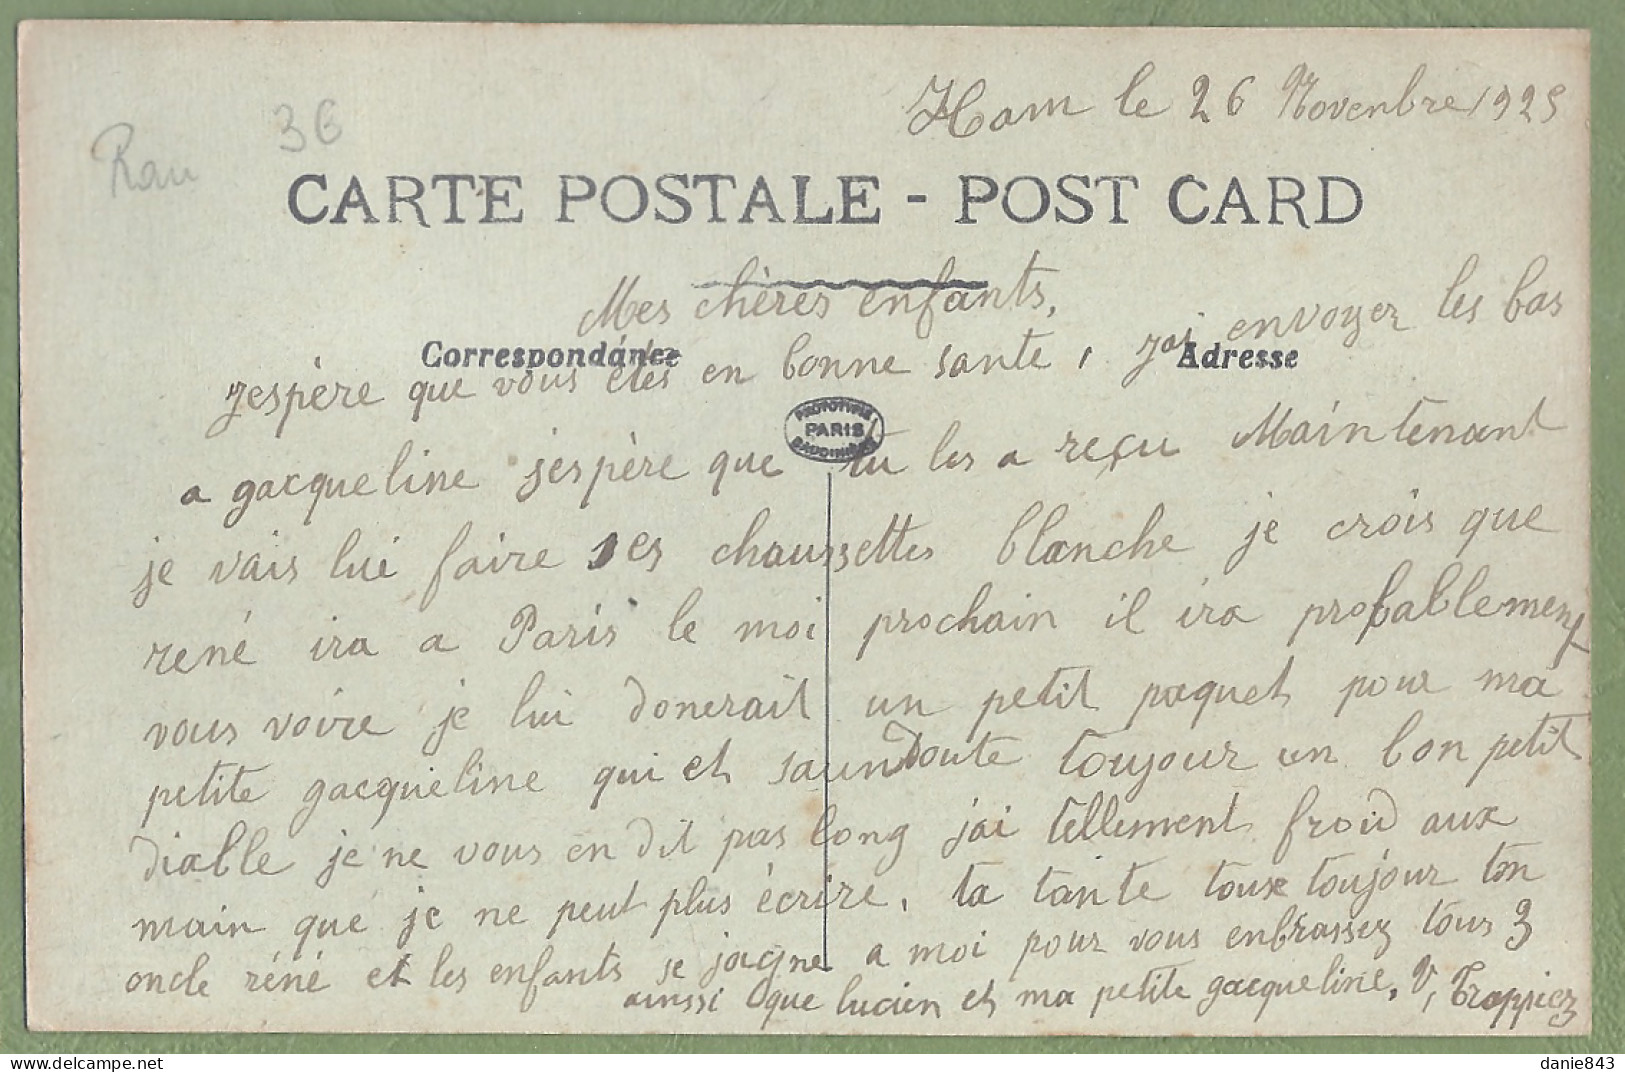 Ham le 26 Novenbre 1925
Rau 36
CARTE POSTALE - POST CARD
Mes chères enfants,
Correspondance
Adresse
jespère que vous étes en bonne sante, jai envoyer les bas
PROTOTYPIE
PARIS
BAUDINIÈRE
a gacqueline jespère que tu les a reçu Maintenant
je vais lui faire des chaussettes blanche je crois que
rené ira a Paris le moi prochain il ira probablement
vous voire je lui donerait un petit paquet pour ma
petite gacqueline qui et saundoute toujour un bon petit
diable je ne vous en dit pas long jai tellement froid aux
main que je ne peut plus écrire, ta tante touse toujour ton
oncle réné et les enfants se jogne a moi pour vous enbrassez tous 3
ainssi que lucien et ma petite gacqueline, V, Trappiez
danie843